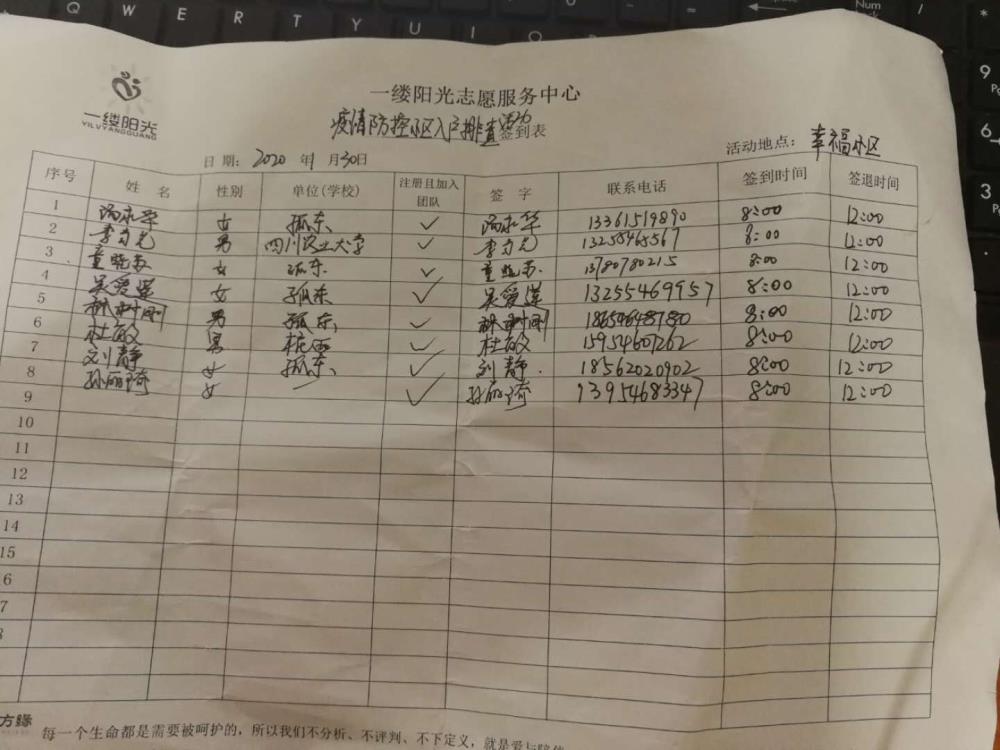 一缕阳光
YILVYANGGUANG
一缕阳光志愿服务中心
疫情防控小区入户排查活动签到表
日期: 2020年1月30日
活动地点: 幸福小区
序号 姓名 性别 单位(学校) 注册且加入团队 签字 联系电话 签到时间 签退时间
1 女 孤东 ✓ 13361519890 8:00 12:00
2 李守元 男 四川农业大学 ✓ 李守元 13255465567 8:00 12:00
3 童晓苏 女 孤东 ✓ 童晓苏 13780780215 8:00 12:00
4 吴爱莲 女 孤东 ✓ 吴爱莲 13255469957 8:00 12:00
5 林树刚 男 孤东 ✓ 林树刚 18654648780 8:00 12:00
6 杜敏 男 ✓ 杜敏 15954607262 8:00 12:00
7 刘静 女 孤东 ✓ 刘静 18562020902 8:00 12:00
8 孙丽琦 女 ✓ 孙丽琦 13954683347 8:00 12:00
9
10
11
12
13
14
15
6
7
方缘
每一个生命都是需要被呵护的，所以我们不分析、不评判、不下定义，就是爱与陪伴
Q W E R T Y U I
Num
9
6
3